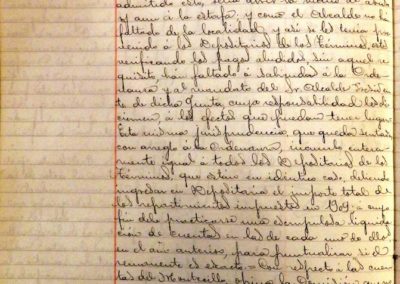 admitido esto, seria abrir la
y aun á la estafa, y como el Alcalde no ha
faltado de la localidad, y así se les tenia pre-
venido á los Depositarios de los Términos, est
verificando los pagos aludidos, sin aquel re
quisito, han faltado á sabiendas á la Orde
nanza y al mandato del Sr. Alcalde Presid
te de dicha Junta, cuya responsabilidad les
á los efectos que puedan tener lugar
Esta misma jurisprudencia, que queda sentada
con arreglo á la Ordenanza, incumbe entera
mente igual á todos los Depositarios de los
Términos, que estén en idéntico caso, debiendo
ingresar en Depositaria el importe total de
los repartimientos impuestos en á cuyo
fin debe practicarse una escrupulosa liquida
ción de cuentas en las de cada uno de ellos
en el año anterior, para puntualizar si el
remanente es exacto. Con respecto á las cuen
tas del opina la Comisión que